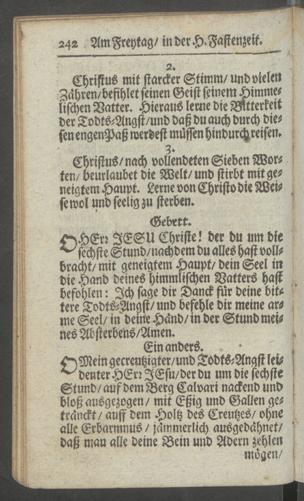 242 Am Freytag/ in der H. Fastenzeit.
2.
Christus mit starcker Stimm/ und vielen
Zähren/ befihlet seinen Geist seinem Himme-
lischen Vatter. Hieraus lerne die Bitterkeit
der Todts-Angst/ und daß du auch durch die-
sen engen Paß werdest müssen hindurch reisen.
3.
Christus/ nach vollendeten Sieben Wor-
ten/ beurlaubet die Welt/ und stirbt mit ge-
neigtem Haupt. Lerne von Christo die Wei-
se wol und seelig zu sterben.
Gebett.
O HErr JESU Christe! der du um die
sechste Stund/ nachdem du alles hast voll-
bracht/ mit geneigtem Haupt/ dein Seel in
die Hand deines himmlischen Vatters hast
befohlen: Ich sage dir Danck für deine bit-
tere Todts-Angst/ und befehle dir meine ar-
me Seel/ in deine Händ/ in der Stund mei-
nes Absterbens/ Amen.
Ein anders.
O Mein gecreutzigter/ und Todts-Angst lei-
denter HErr JEsu/ der du um die sechste
Stund/ auf dem Berg Calvari nackend und
bloß ausgezogen/ mit Eßig und Gallen ge-
tränckt/ auff dem Holtz des Creutzes/ ohne
alle Erbarmnus/ jämmerlich ausgedähnet/
daß man alle deine Bein und Adern zehlen
mögen/